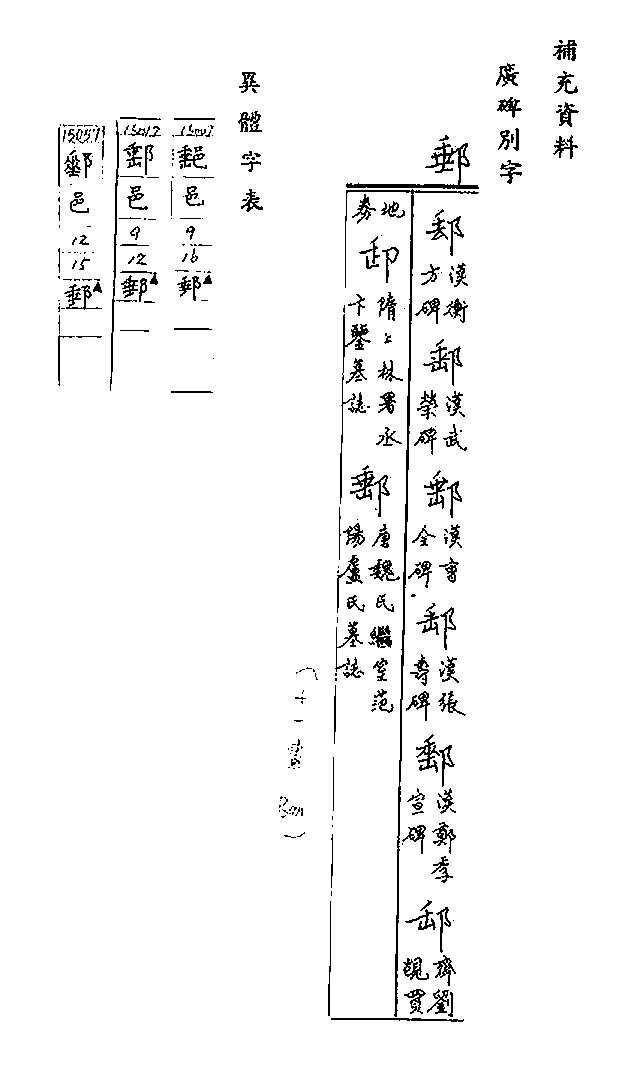 補充資料
廣碑別字
郵
郵 漢衡方碑 郵 漢武榮碑 郵 漢曹全碑 郵 漢張壽碑 郵 漢鄭季宣碑 郵 齊劉覬買
地券 郵 隋上林署丞卞鑒墓誌 郵 唐魏氏繼室范陽盧氏墓誌
(十一畫 )
異體字表
邑 9 16 郵▲
邑 9 12 郵▲
邑 12 15 郵▲